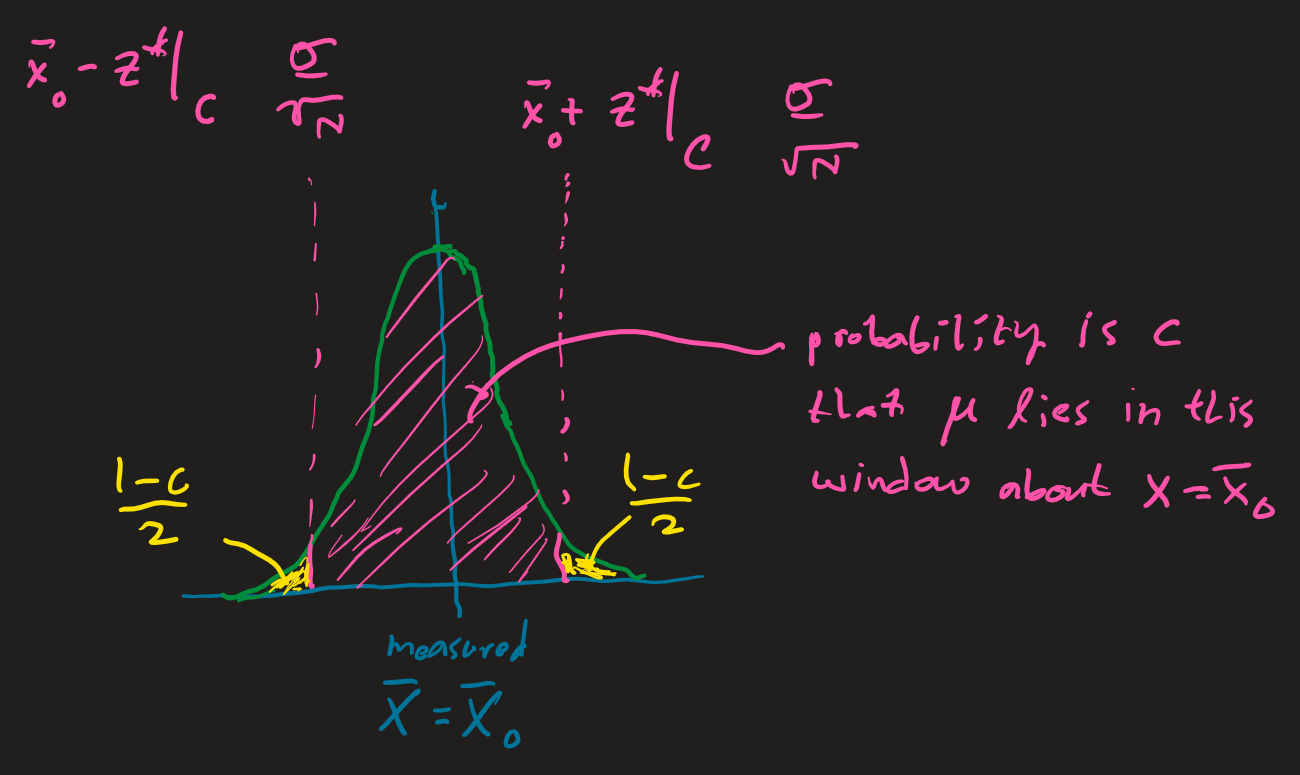 x̄₀ - z*|_C σ/√N
x̄₀ + z*|_C σ/√N
probability is C
that μ lies in this
window about X = x̄₀
1-C/2
1-C/2
measured
X̄ = X̄₀